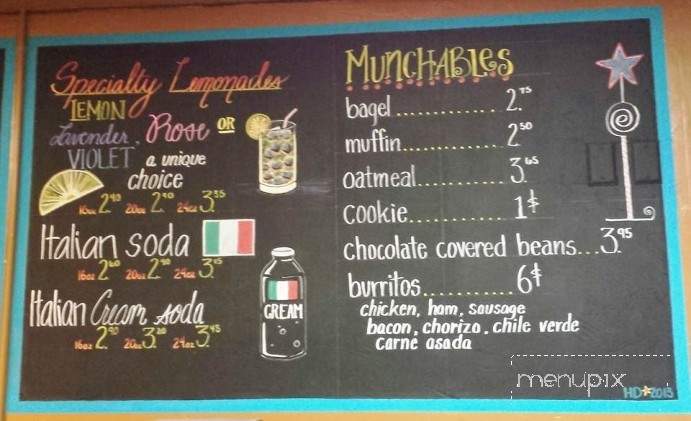 Specialty Lemonades
LEMON
Lavender, Rose OR
VIOLET a unique
choice
16oz 2.40 20oz 2.90 24oz 3.35
Italian soda
16oz 2.60 20oz 2.90 24oz 3.15
Italian Cream soda
16oz 2.90 20oz 3.20 24oz 3.45
CREAM
MUNCHABLES
bagel............ 2.75
muffin............ 2.50
oatmeal.......... 3.65
cookie........... 1¢
chocolate covered beans...3.95
burritos........... 6¢
chicken, ham, sausage
bacon, chorizo, chile verde
carne asada
menupix
HD★2013